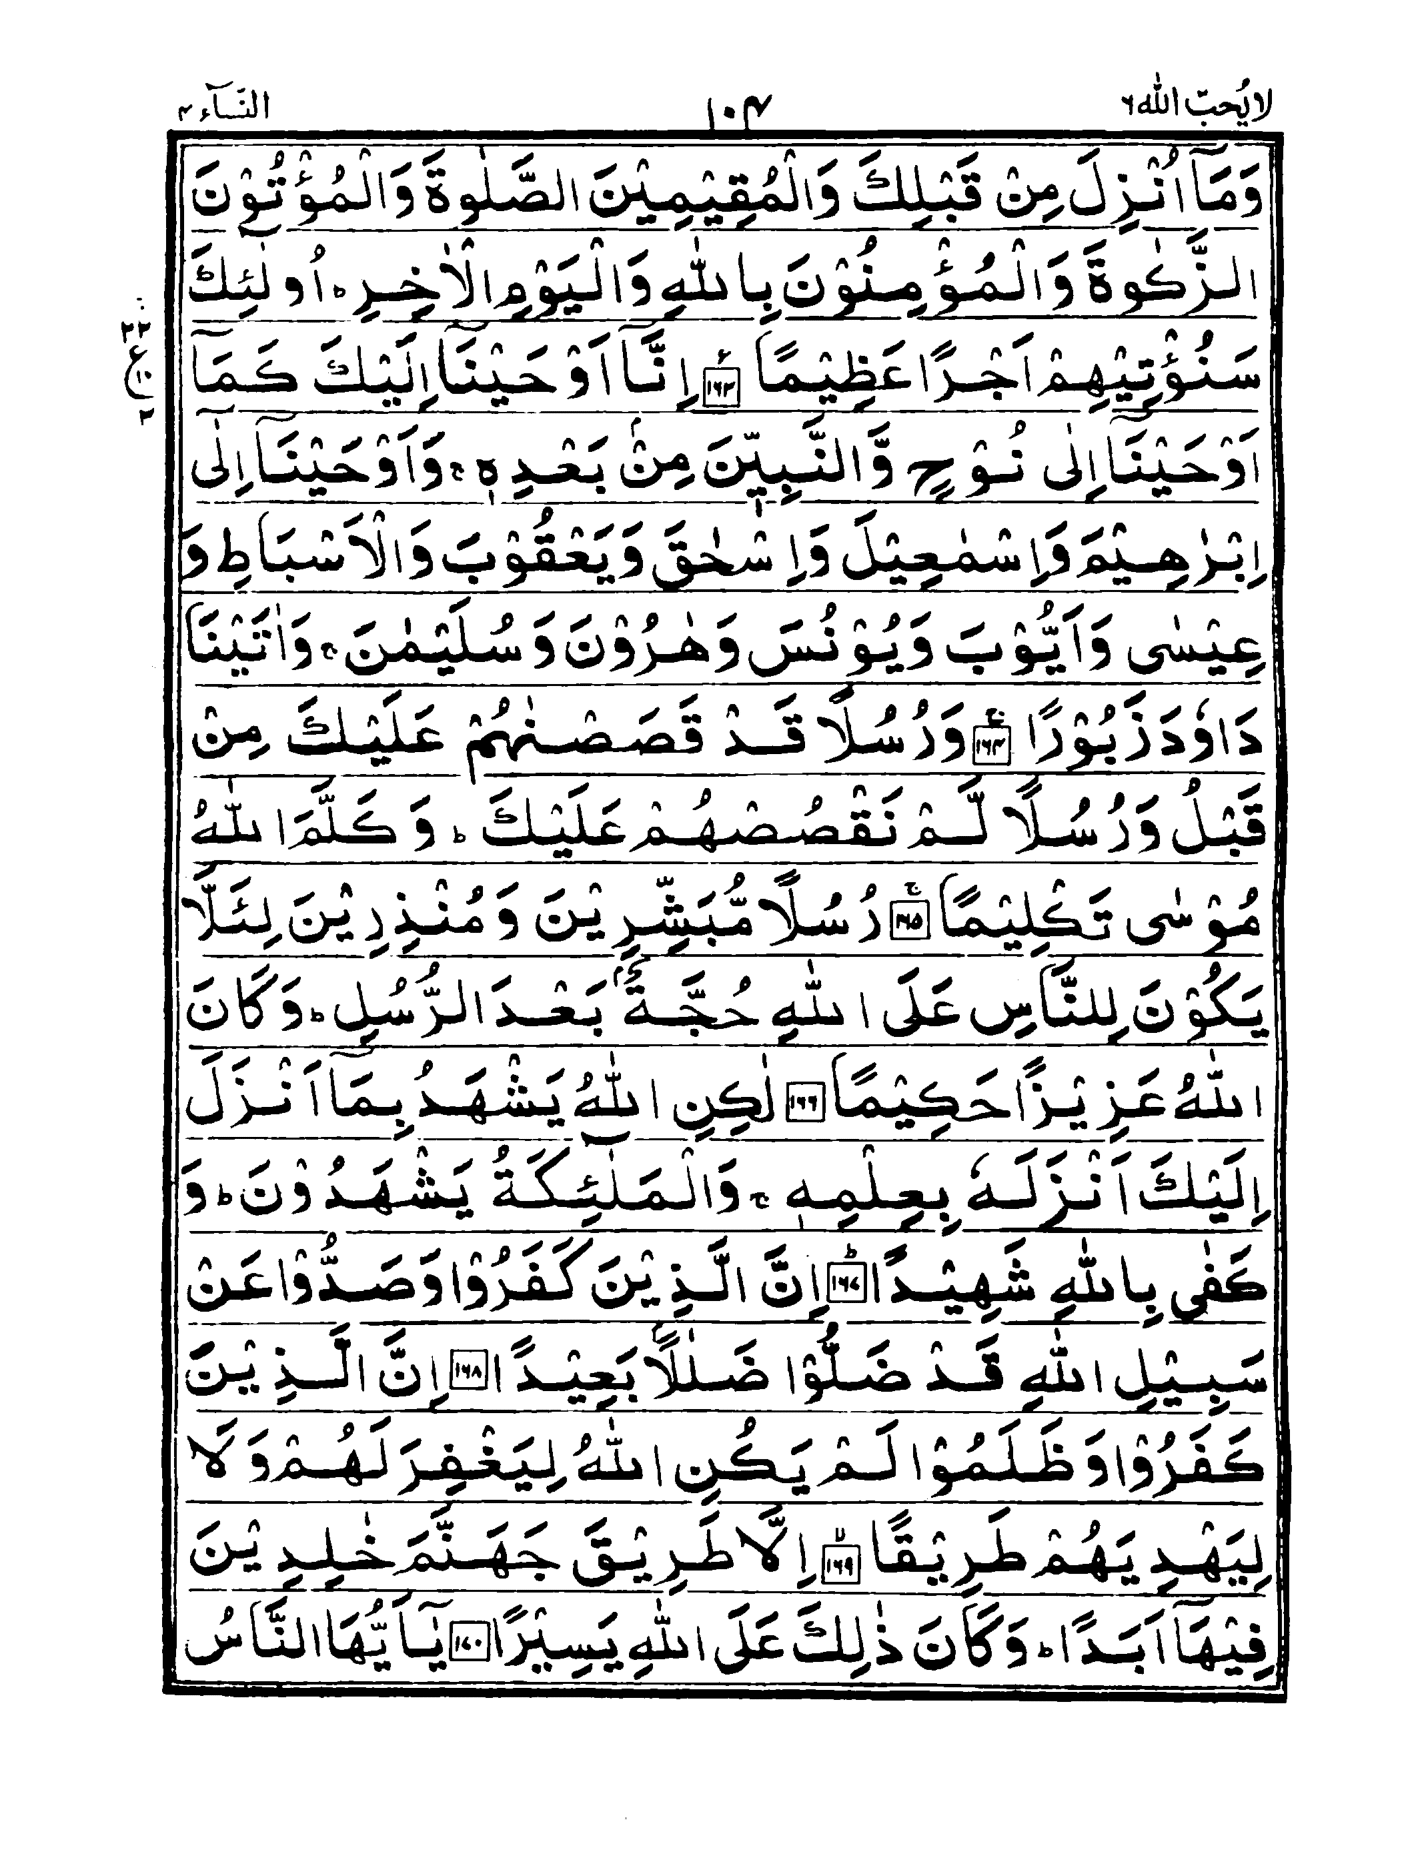 لا يُحِبُّ اللّٰهُ ٦
١٠٤
النِّسَآء ٤
وَمَآ اُنْزِلَ مِنْ قَبْلِكَ وَالْمُقِيْمِيْنَ الصَّلٰوةَ وَالْمُؤْتُوْنَ
الزَّكٰوةَ وَالْمُؤْمِنُوْنَ بِاللّٰهِ وَالْيَوْمِ الْاٰخِرِ ؕ اُولٰٓئِكَ
سَنُؤْتِيْهِمْ اَجْرًا عَظِيْمًا ۧ ١٦٢ اِنَّآ اَوْحَيْنَآ اِلَيْكَ كَمَآ
اَوْحَيْنَآ اِلٰى نُوْحٍ وَّالنَّبِيّٖنَ مِنْۢ بَعْدِهٖ ۚ وَاَوْحَيْنَآ اِلٰٓى
اِبْرٰهِيْمَ وَاِسْمٰعِيْلَ وَاِسْحٰقَ وَيَعْقُوْبَ وَالْاَسْبَاطِ وَ
عِيْسٰى وَاَيُّوْبَ وَيُوْنُسَ وَهٰرُوْنَ وَسُلَيْمٰنَ ۚ وَاٰتَيْنَا
دَاوٗدَ زَبُوْرًا ۚ ١٦٣ وَرُسُلًا قَدْ قَصَصْنٰهُمْ عَلَيْكَ مِنْ
قَبْلُ وَرُسُلًا لَّمْ نَقْصُصْهُمْ عَلَيْكَ ؕ وَكَلَّمَ اللّٰهُ
مُوْسٰى تَكْلِيْمًا ۚ ١٦٥ رُسُلًا مُّبَشِّرِيْنَ وَمُنْذِرِيْنَ لِئَلَّا
يَكُوْنَ لِلنَّاسِ عَلَى اللّٰهِ حُجَّةٌۢ بَعْدَ الرُّسُلِ ؕ وَكَانَ
اللّٰهُ عَزِيْزًا حَكِيْمًا ١٦٦ لٰكِنِ اللّٰهُ يَشْهَدُ بِمَآ اَنْزَلَ
اِلَيْكَ اَنْزَلَهٗ بِعِلْمِهٖ ۚ وَالْمَلٰٓئِكَةُ يَشْهَدُوْنَ ؕ وَ
كَفٰى بِاللّٰهِ شَهِيْدًا ؕ ١٦٧ اِنَّ الَّذِيْنَ كَفَرُوْا وَصَدُّوْا عَنْ
سَبِيْلِ اللّٰهِ قَدْ ضَلُّوْا ضَلٰلًاۢ بَعِيْدًا ١٦٨ اِنَّ الَّذِيْنَ
كَفَرُوْا وَظَلَمُوْا لَمْ يَكُنِ اللّٰهُ لِيَغْفِرَ لَهُمْ وَلَا
لِيَهْدِيَهُمْ طَرِيْقًا ۙ ١٦٩ اِلَّا طَرِيْقَ جَهَنَّمَ خٰلِدِيْنَ
فِيْهَآ اَبَدًا ؕ وَكَانَ ذٰلِكَ عَلَى اللّٰهِ يَسِيْرًا ١٧٠ يٰٓاَيُّهَا النَّاسُ
٢٢
ع
١٠
٢